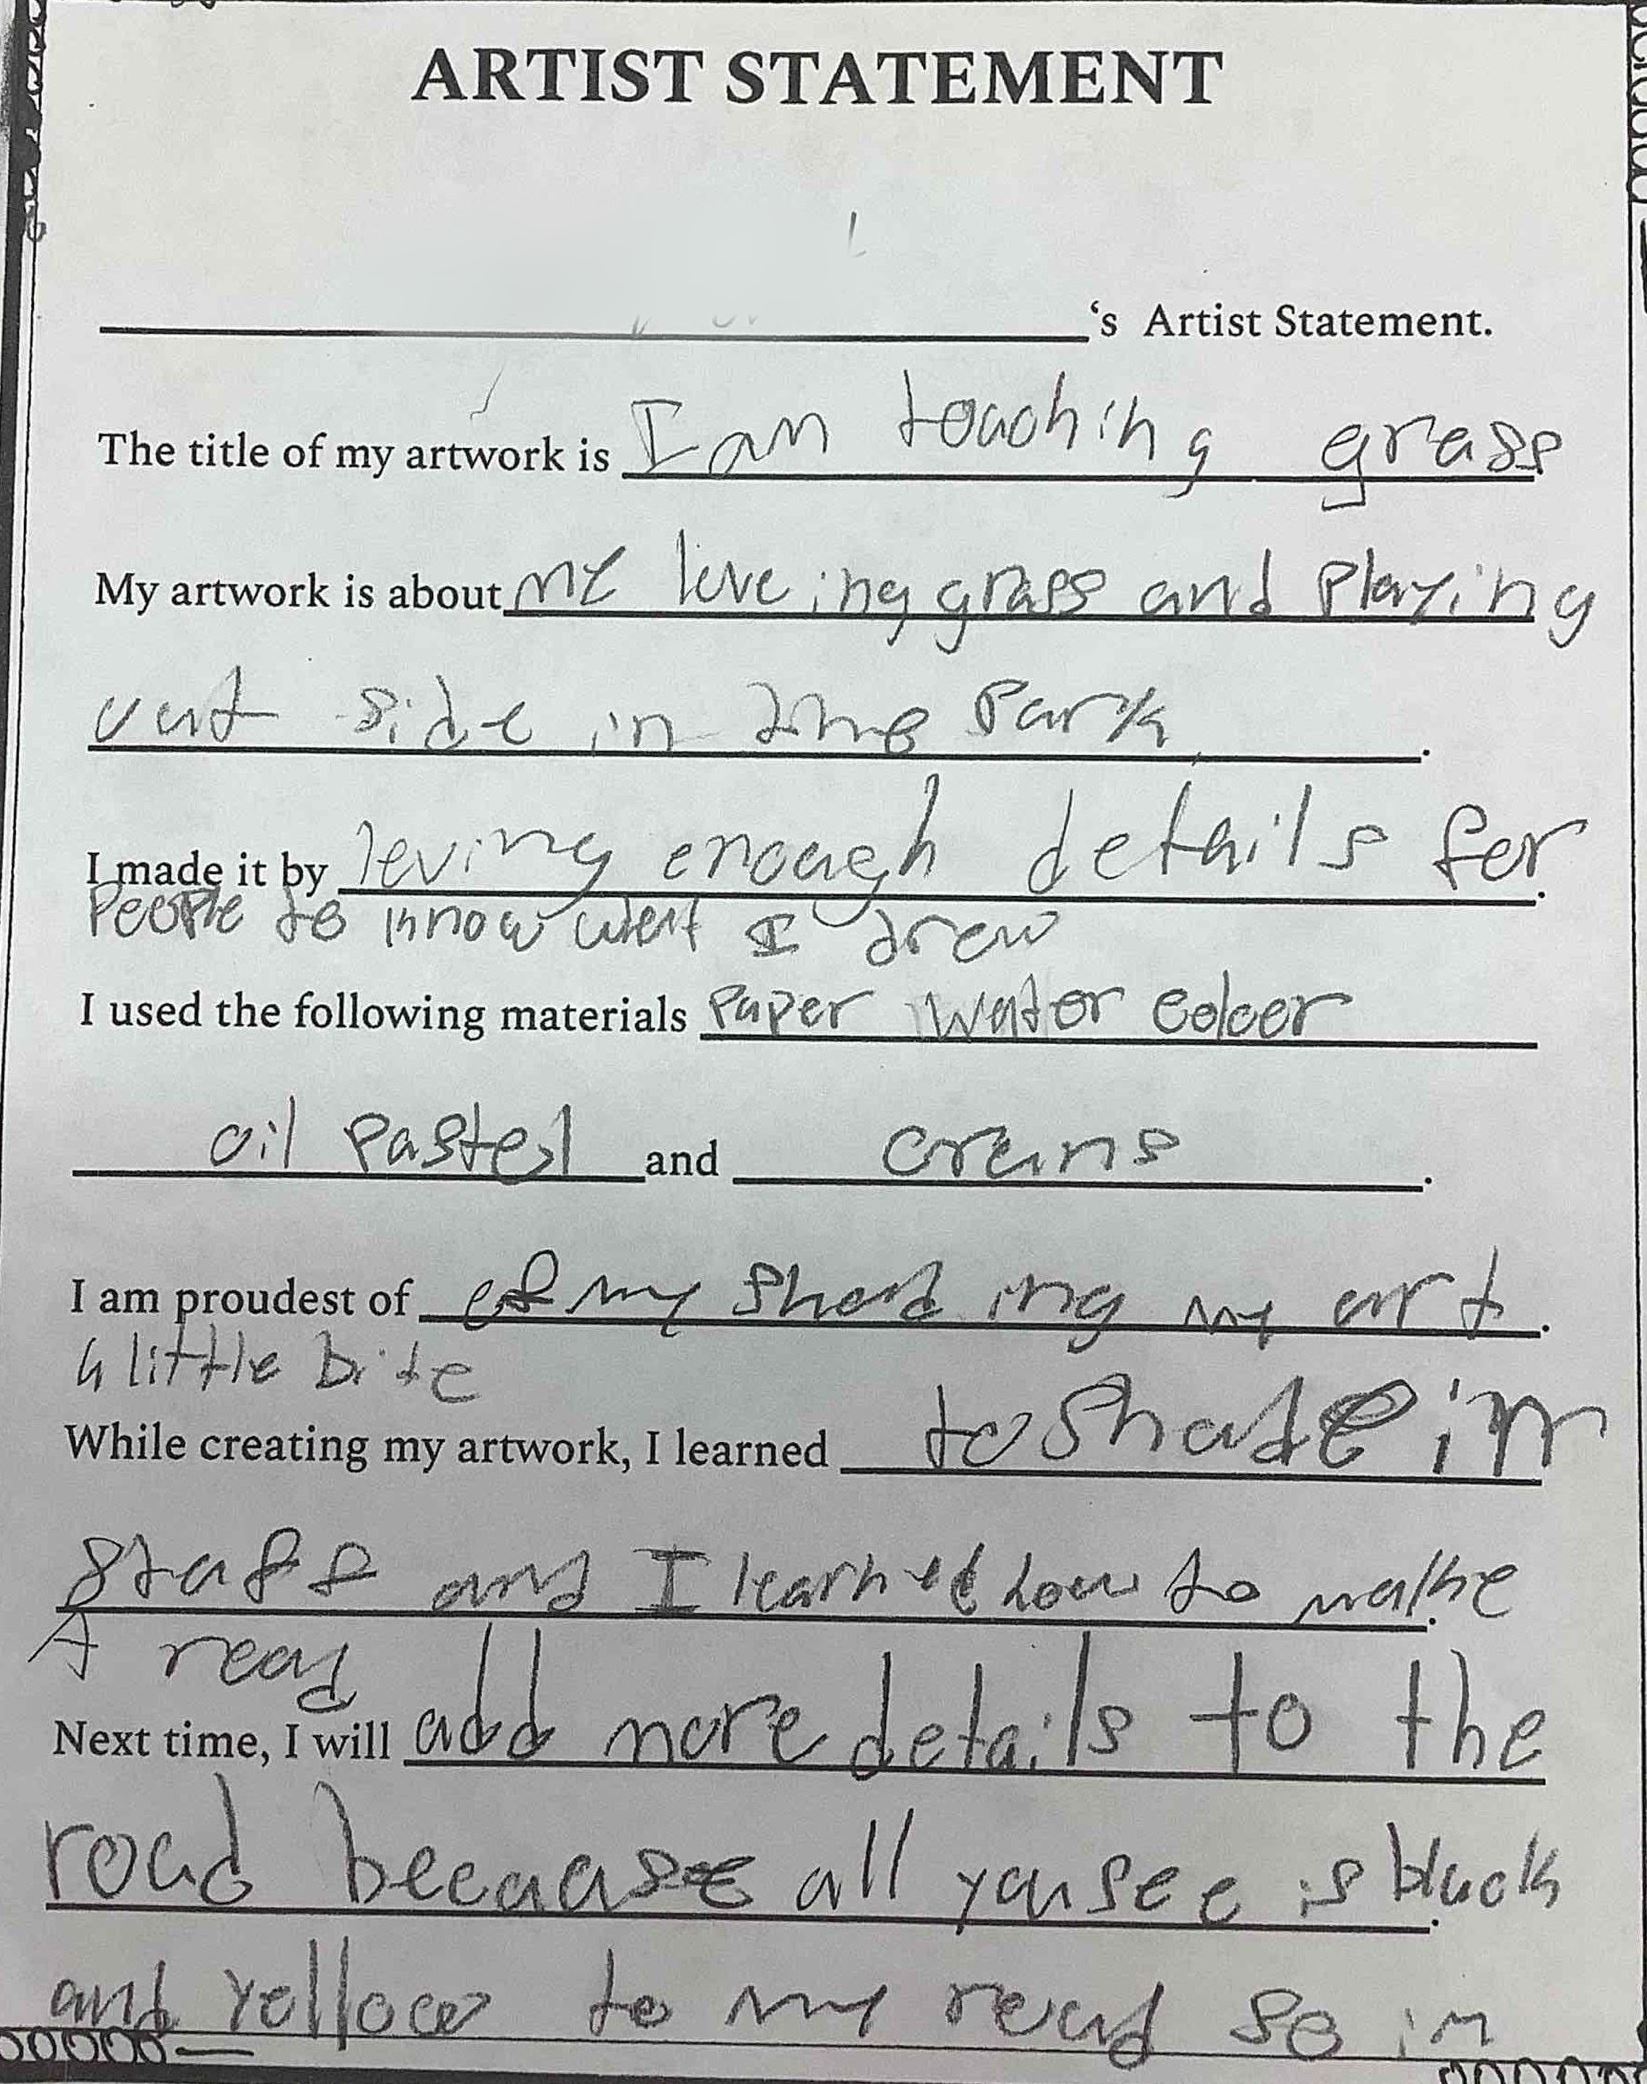 ARTIST STATEMENT
's Artist Statement.
The title of my artwork is I am touching grass
My artwork is about my loveing grass and playing
out side in the Park
I made it by leving enough details for
People to know what I drew
I used the following materials Paper water coloer
oil pastel and crans
I am proudest of of my shading my art
a little bite
While creating my artwork, I learned to shade in
staff and I learned how to make
A road
Next time, I will add more details to the
road because all you see is black
and yellow to my road so im